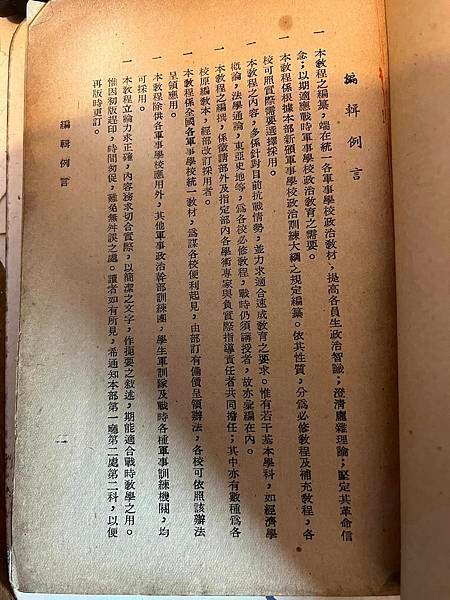 編輯例言
一 本教程之編纂，端在統一各軍事學校政治教材，提高各員生政治智識；澄清龐雜理論；堅定其革命信
念；以期適應戰時軍事學校政治教育之需要。
一 本教程係根據本部新頒軍事學校政治訓練大綱之規定編纂。依其性質，分為必修教程及補充教程，各
校可照實際需要選擇採用。
一 本教程之內容，多係針對目前抗戰情勢，並力求適合速成教育之要求。惟有若干基本學科，如經濟學
概論，法學通論，東亞史地等，為各校必修教程，戰時仍須講授者，故亦彙編在內。
一 本教程之編撰，係徵請部外及指定部內各學術專家與負實際指導責任者共同擔任；其中亦有數種為各
校原編教本，經部改訂採用者。
一 本教程係全國各軍事學校統一教材，為謀各校便利起見，由部訂有備價呈領辦法，各校可依照該辦法
呈領應用。
一 本教程除供各軍事學校應用外，其他軍事政治幹部訓練團，學生軍訓隊及戰時各種軍事訓練機關，均
可採用。
一 本教程立論力求正確，內容務求切合實際，以簡潔之文字，作扼要之敘述，期能適合戰時教學之用。
惟因初版趕印，時間匆促，難免無舛誤之處。讀者如有所見，希通知本部第一廳第二處第二科，以便
再版時更訂。
編輯例言
一